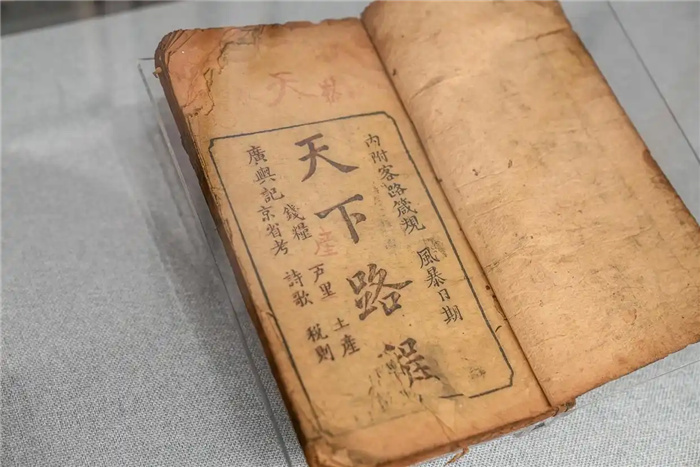 天
內附客路箴規 風暴日期
天下路程
錢糧 戶里 土產
詩歌 稅則
廣輿記京省考